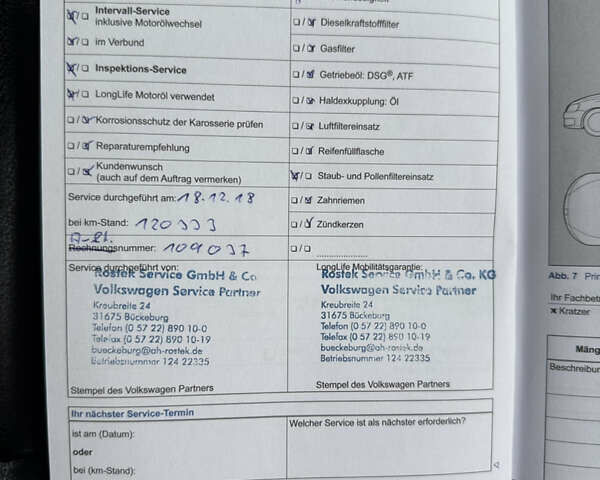 Intervall-Service
inklusive Motorölwechsel
im Verbund
Inspektions-Service
LongLife Motoröl verwendet
Korrosionsschutz der Karosserie prüfen
Reparaturempfehlung
Kundenwunsch
(auch auf dem Auftrag vermerken)
Service durchgeführt am: 18.12.18
bei km-Stand: 120333
Rechnungsnummer: 109037
Dieselkraftstofffilter
Gasfilter
Getriebeöl: DSG®, ATF
Haldexkupplung: Öl
Luftfiltereinsatz
Reifenfüllflasche
Staub- und Pollenfiltereinsatz
Zahnriemen
Zündkerzen
Service durchgeführt von:
Rostek Service GmbH & Co.
Volkswagen Service Partner
Kreubreite 24
31675 Bückeburg
Telefon (0 57 22) 890 10-0
Telefax (0 57 22) 890 10-19
bueckeburg@ah-rostek.de
Betriebsnummer 124 22335
Stempel des Volkswagen Partners
LongLife Mobilitätsgarantie:
Rostek Service GmbH & Co. KG
Volkswagen Service Partner
Kreubreite 24
31675 Bückeburg
Telefon (0 57 22) 890 10-0
Telefax (0 57 22) 890 10-19
bueckeburg@ah-rostek.de
Betriebsnummer 124 22335
Stempel des Volkswagen Partners
Ihr nächster Service-Termin
ist am (Datum):
oder
bei (km-Stand):
Welcher Service ist als nächster erforderlich?
Abb. 7 Prin
Ihr Fachbet
x Kratzer
Mäng
Beschreibun